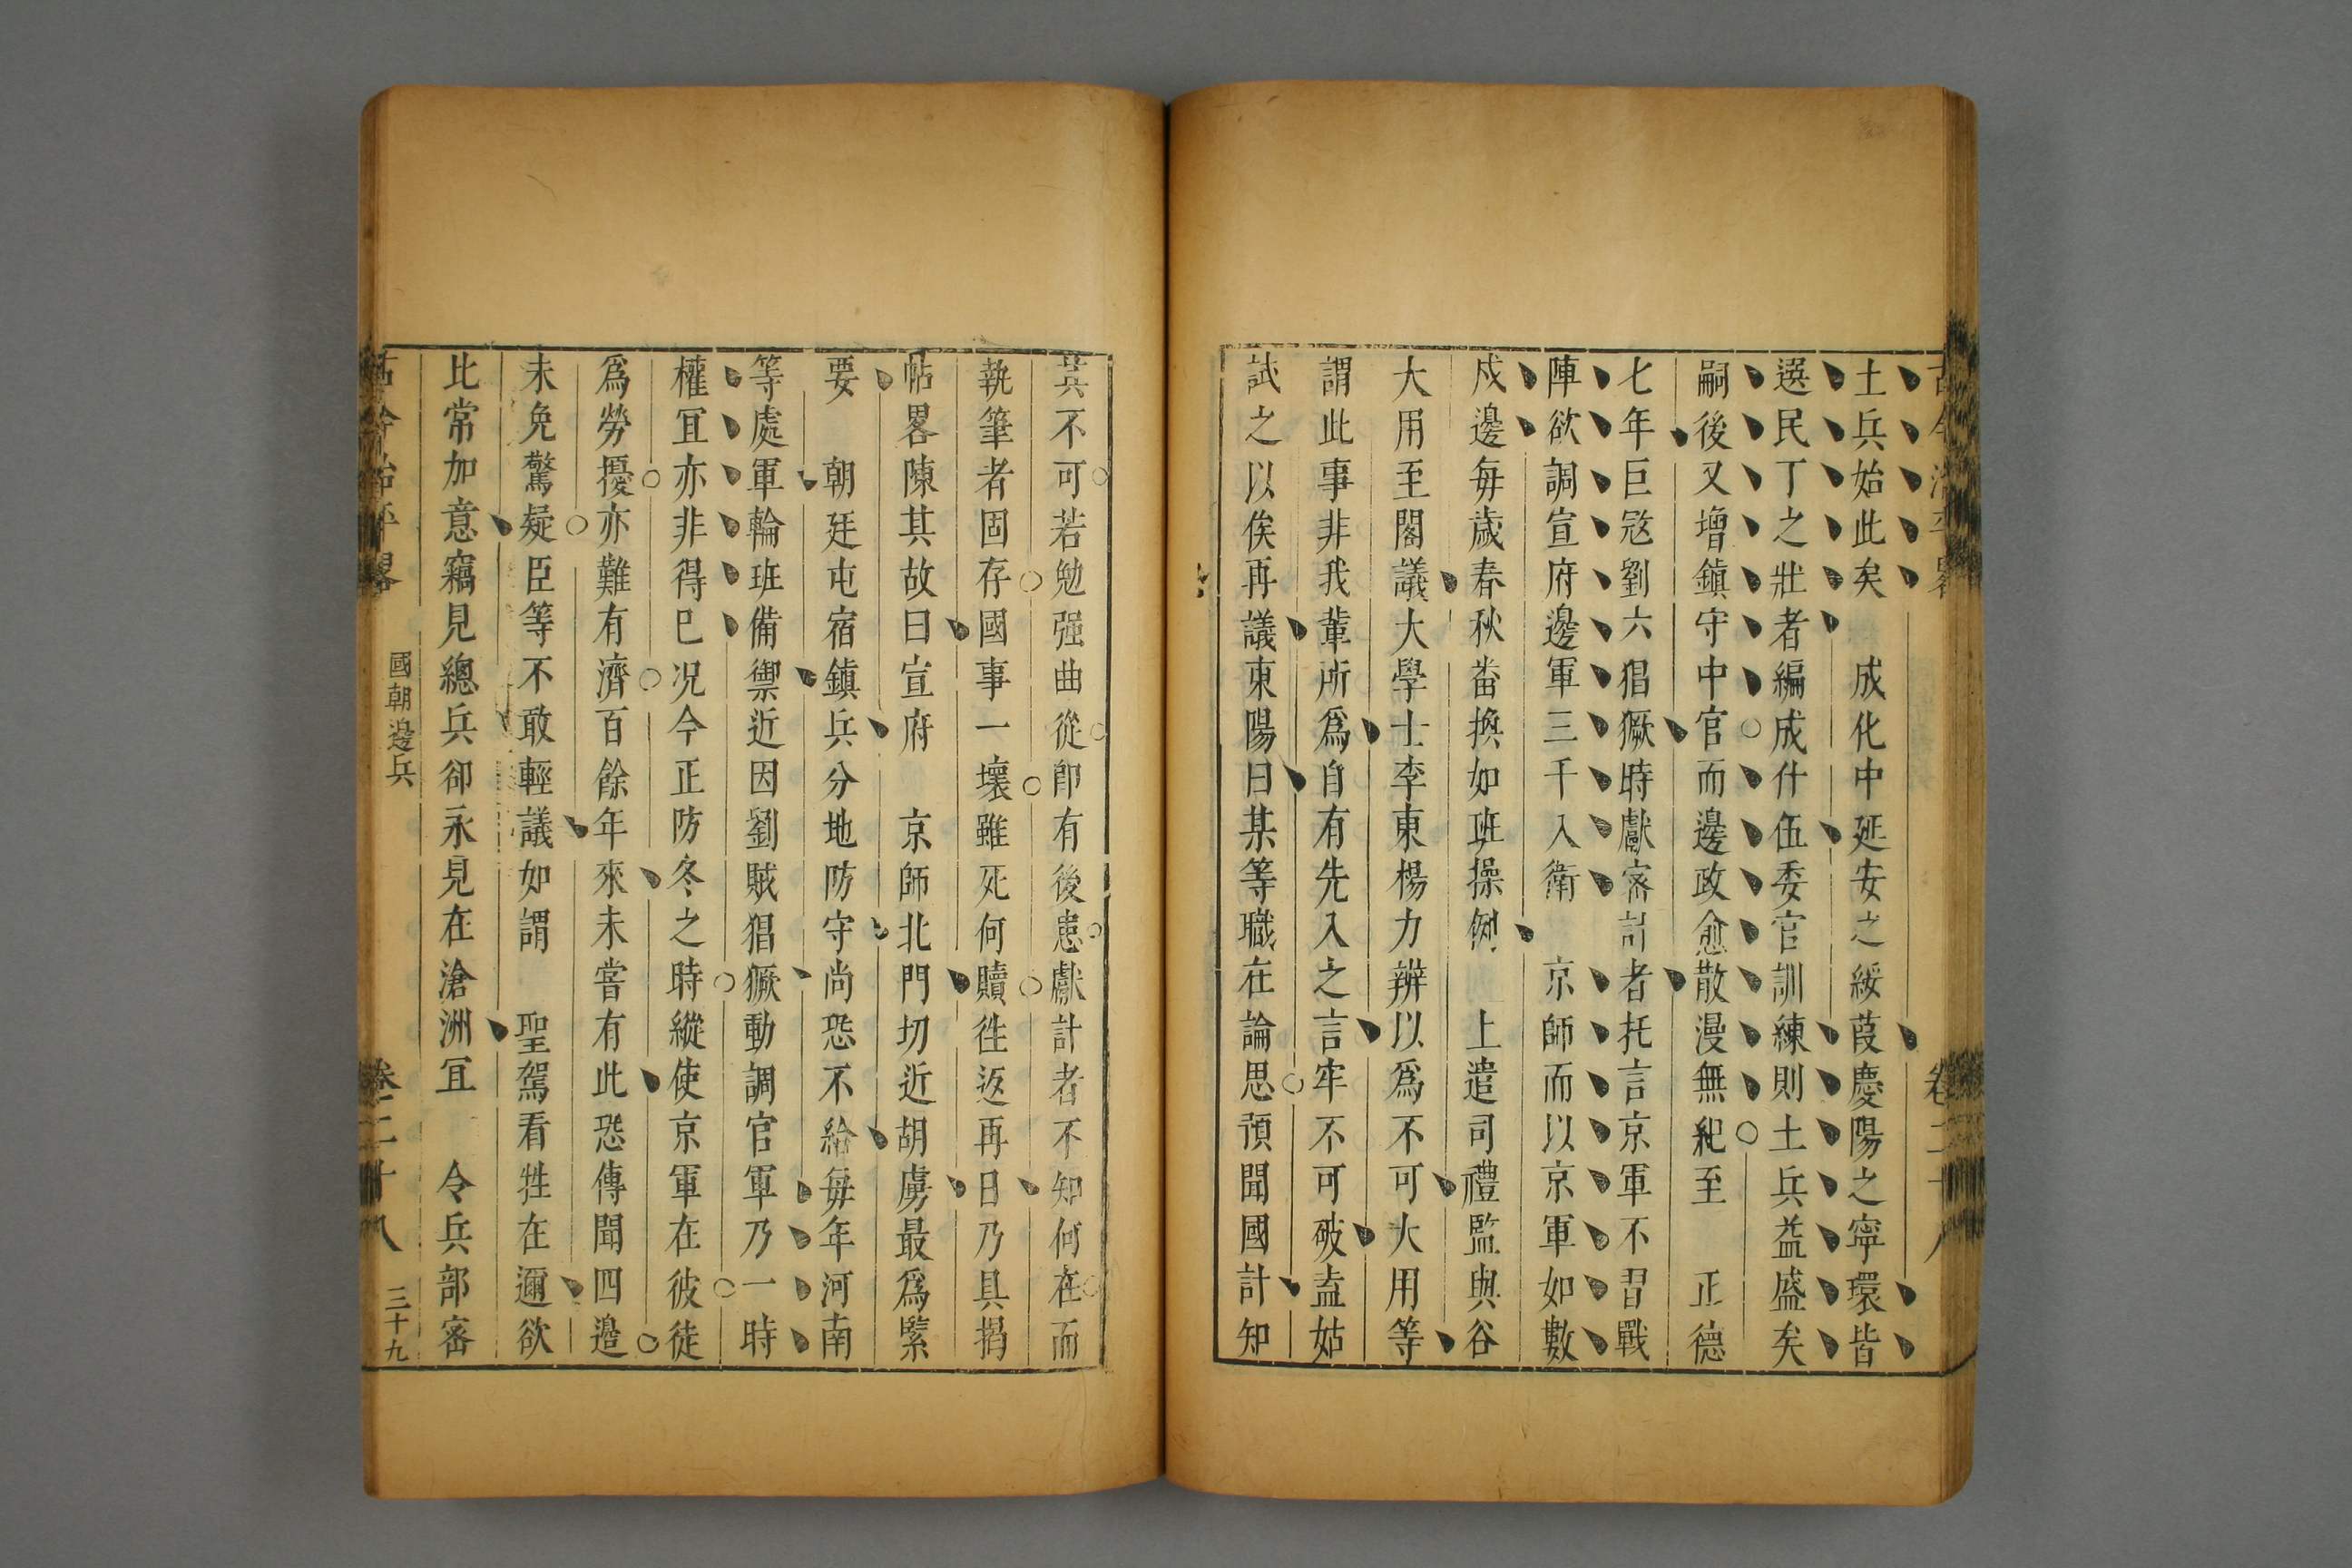 土兵始此矣　成化中延安之綏葭慶陽之寧環皆
選民丁之壯者編成什伍委官訓練則土兵益盛矣
嗣後又增鎮守中官而邊政愈散漫無紀至　正德
七年巨寇劉六猖獗時獻密計者托言京軍不習戰
陣欲調宣府邊軍三千入衛　京師而以京軍如數
戍邊每歲春秋畨換如班操例　上遣司禮監與谷
大用至閣議大學士李東楊力辨以為不可大用等
謂此事非我輩所爲自有先入之言牢不可破盍姑
試之以俟再議東陽曰某等職在論思預聞國計知
其不可若勉强曲從即有後患獻計者不知何在而
執筆者固存國事一壞雖死何贖徃返再日乃具揭
帖畧陳其故曰宣府　京師北門切近胡虜最爲緊
要　朝廷屯宿鎮兵分地防守尚恐不給每年河南
等處軍輪班備禦近因劉賊猖獗動調官軍乃一時
權冝亦非得已况今正防冬之時縱使京軍在彼徒
爲勞擾亦難有濟百餘年來未嘗有此恐傳聞四邉
未免驚疑臣等不敢輕議如謂　聖駕看牲在邇欲
比常加意竊見總兵卻永見在滄洲冝　令兵部密
古今治平畧　國朝邉兵　卷二十八　三十九